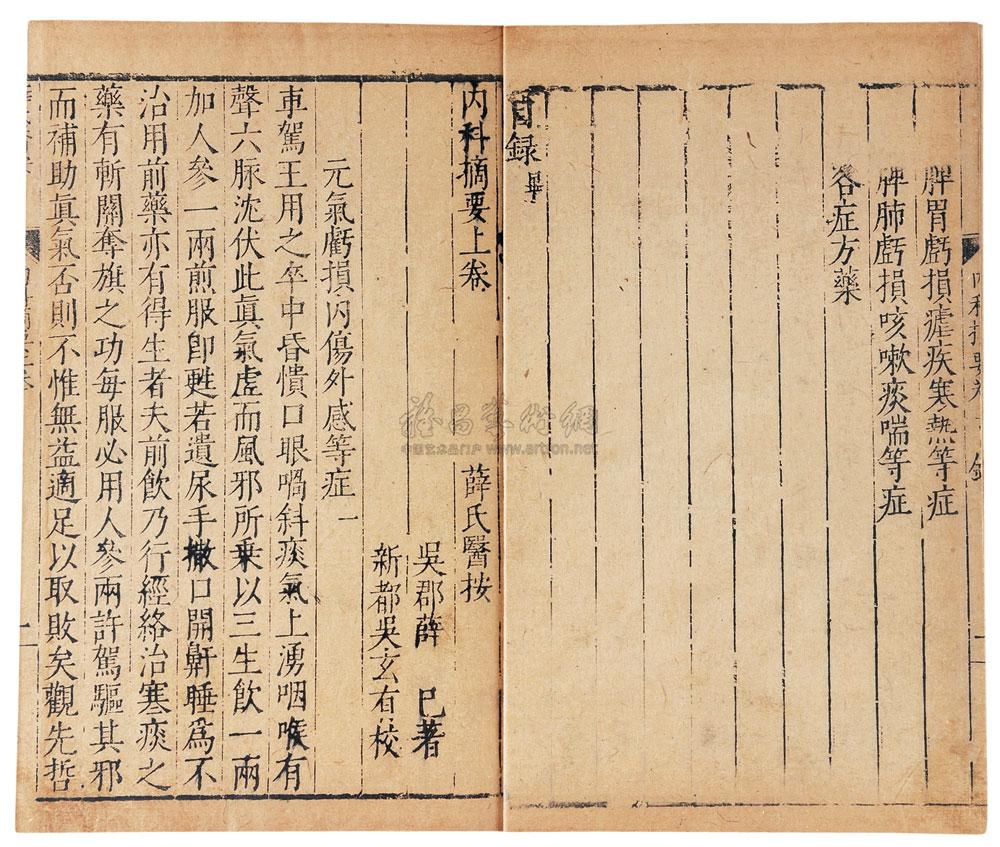 脾胃虧損瘧疾寒熱等症
脾肺虧損咳嗽痰喘等症
各症方藥
目録畢
内科摘要上卷 薛氏醫按
吳郡薛 巳著
新都吳玄有校
元氣虧損内傷外感等症 一
車駕王用之卒中昏憒口眼喎斜痰氣上湧咽喉有
聲六脉沈伏此眞氣虚而風邪所乗以三生飲一兩
加人參一兩煎服卽甦若遺尿手撒口開鼾睡爲不
治用前藥亦有得生者夫前飲乃行經絡治寒痰之
藥有斬關奪旗之功每服必用人參兩許駕驅其邪
而補助眞氣否則不惟無益適足以取敗矣觀先哲
www.artron.net